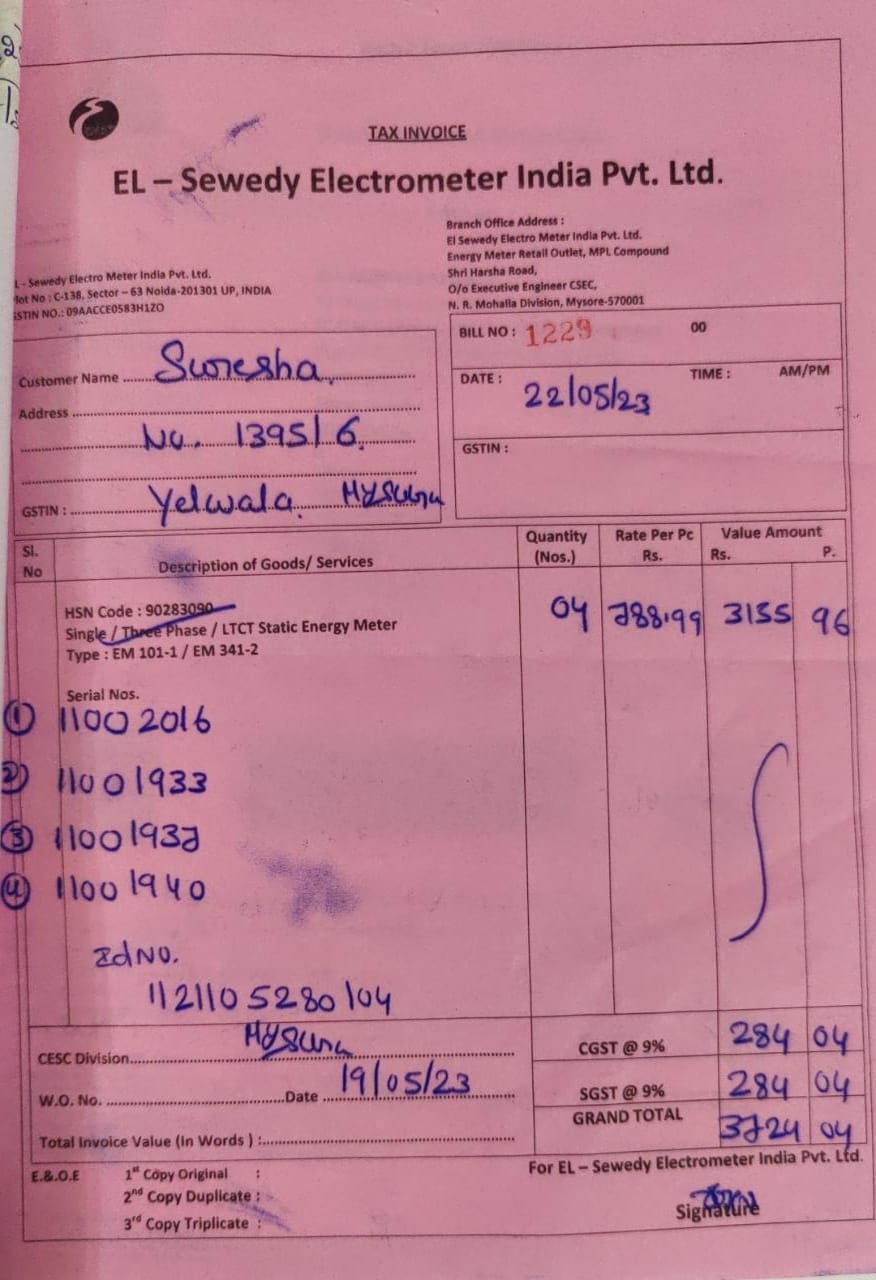 TAX INVOICE
EL – Sewedy Electrometer India Pvt. Ltd.
L - Sewedy Electro Meter India Pvt. Ltd.
lot No : C-138, Sector – 63 Noida-201301 UP, INDIA
STIN NO.: 09AACCE0583H1ZO
Branch Office Address :
El Sewedy Electro Meter India Pvt. Ltd.
Energy Meter Retail Outlet, MPL Compound
Shri Harsha Road,
O/o Executive Engineer CSEC,
N. R. Mohalla Division, Mysore-570001
Customer Name Suresha
Address
No. 1395/6
GSTIN : Yelwala Mysuru
BILL NO : 1229 00
DATE : 22/05/23 TIME : AM/PM
GSTIN :
Sl. No Description of Goods/ Services Quantity (Nos.) Rate Per Pc Rs. Value Amount Rs. P.
HSN Code : 90283090 04 788.99 3155 96
Single / Three Phase / LTCT Static Energy Meter
Type : EM 101-1 / EM 341-2
Serial Nos.
① 11002016
② 11001933
③ 11001937
④ 11001940
Id No.
1121105280104
CESC Division Mysuru CGST @ 9% 284 04
W.O. No. Date 19/05/23 SGST @ 9% 284 04
GRAND TOTAL 3724 04
Total Invoice Value (In Words ) :
E.&.O.E 1st Copy Original : For EL – Sewedy Electrometer India Pvt. Ltd.
2nd Copy Duplicate :
3rd Copy Triplicate : Signature